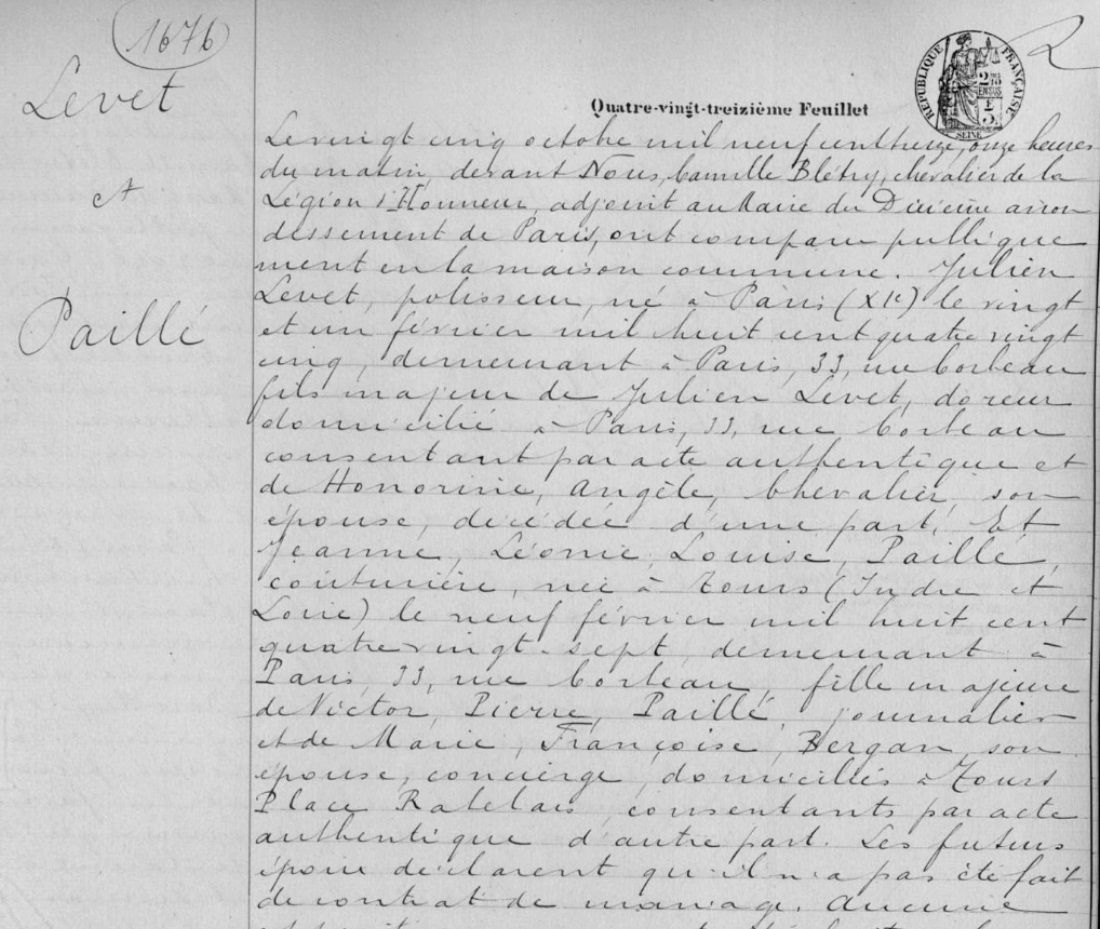 1676
Levet
et
Paillé
R
RÉPUBLIQUE FRANÇAISE
SEINE
Quatre-vingt-treizième Feuillet
Le vingt cinq octobre mil neuf cent treize, onze heures
du matin, devant Nous, Camille Blétry, chevalier de la
Légion d'Honneur, adjoint au Maire du Dixième arron
dissement de Paris, ont comparu publique
ment en la maison commune. Julien
Levet, polisseur, né à Paris (XIe) le vingt
et un février mil huit cent quatre vingt
cinq, demeurant à Paris, 33, rue Corbeau
fils majeur de Julien Levet, doreur
domicilié à Paris, 33, rue Corbeau
consentant par acte authentique et
de Honorine, Angèle, Chevalier, son
épouse, décédée d'une part. Et
Jeanne, Léonie, Louise, Paillé,
couturière, née à Tours (Indre et
Loire) le neuf février mil huit cent
quatre vingt-sept, demeurant à
Paris, 33, rue Corbeau, fille majeure
de Victor, Pierre, Paillé, journalier
et de Marie, Françoise, Bergan, son
épouse, concierge, domiciliés à Tours
Place Rabelais, consentants par acte
authentique d'autre part. Les futurs
époux déclarent qu'il n'a pas été fait
de contrat de mariage. Aucune